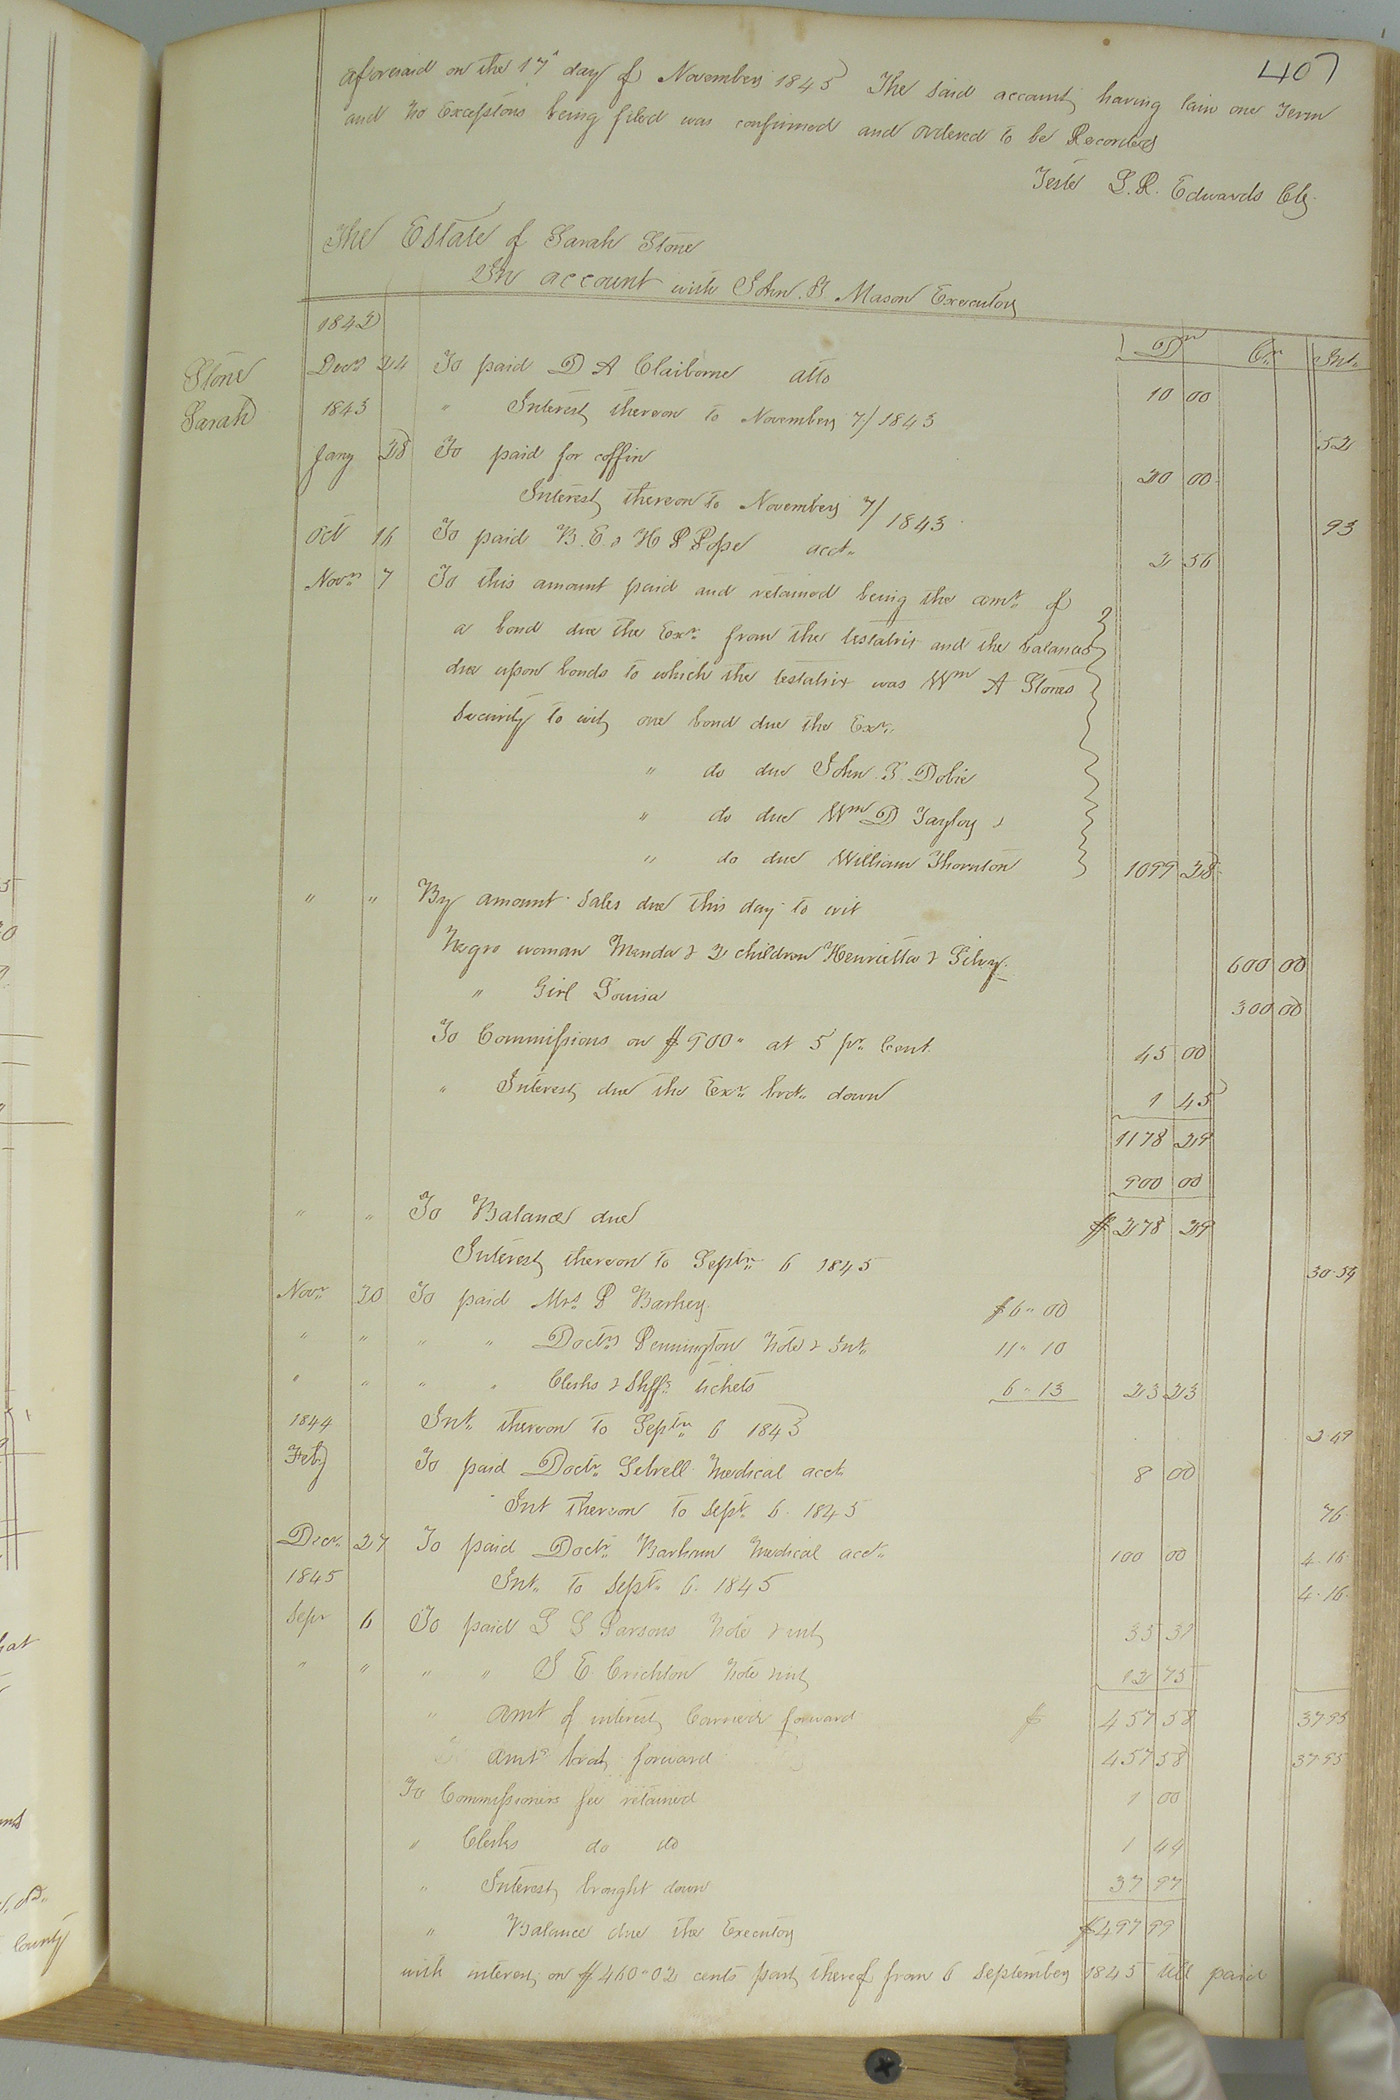 407
aforesaid on the 17th day of November 1845 The said account having lain one Term
and no Exceptions being filed was confirmed and ordered to be Recorded
Teste L. R. Edwards Clk
The Estate of Sarah Stone
In account with John Y Mason Executor
1842 Dr Cr Int.
Stone Sarah
Decr 24 To paid D A Claiborne atto 10 00
1843 " Interest thereon to November 7/1843 52
Jany 28 To paid for coffin 20 00
Interest thereon to November 7/1843 93
Oct 16 To paid B. E. & H P Pope acct. 2 56
Novr 7 To this amount paid and retained being the amt. of
a bond due the Exr. from the testatrix and the balances
due upon bonds to which the testatrix was Wm A Stones
Security to wit, one bond due the Exr.
" do due John S. Dobie
" do due Wm D Taylor &
" do due William Thornton 1099 28
" " By amount Sales due this day to wit
Negro woman Manda & 2 children Henrietta & Silvy 600 00
" Girl Louisa 300 00
To Commissions on $900" at 5 pr. Cent 45 00
" Interest due the Exr. brot. down 1 45
1178 29
900 00
" " To Balance due $ 278 29
Interest thereon to Septr. 6 1845 30.54
Novr 30 To paid Mrs P Barkey $6"00
" " " " Doctr Pennington Note & Int. 11"10
" " " " Clerks & Shffs. tickets 6"13 23 23
1844 Int. thereon to Septr. 6 1845 2.49
Feby To paid Doctr. Sebrell Medical acct. 8 00
Int thereon to Sept. 6. 1845 76
Decr. 27 To paid Doctr. Barham Medical acct. 100 00 4.16
1845 Int. to Septr. 6. 1845 4.16
Sepr 6 To paid S S Parsons Note & int 35 31
" " " " S E Crichton Note & int 12 75
" amt of interest Carried forward $ 457 58 37 95
amts brot forward 457 58 37 95
To Commissioners fee retained 1 00
" Clerks do do 1 44
" Interest brought down 37 97
" Balance due the Executor $497 99
with interest on $460"02 cents part thereof from 6 September 1845 till paid